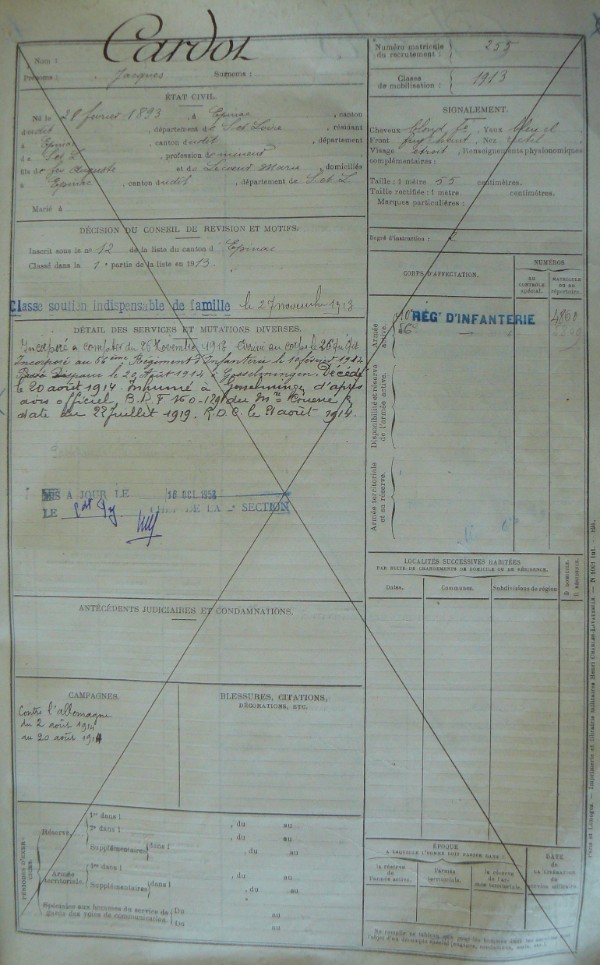 Nom :
Cardot
Prénoms : Jacques Surnoms :
Numéro matricule
du recrutement : 255
Classe
de mobilisation : 1913
ÉTAT CIVIL.
Né le 28 février 1893, à Epinac, canton
dudit, département de S. et Loire, résidant
à Epinac, canton dudit, département
de S. et L., profession de mineur
fils de feu Auguste et de Lecoeur Marie, domiciliés
à Epinac, canton dudit, département de S. et L.
Marié à
SIGNALEMENT.
Cheveux blond, Yeux bleu
Front, Nez
Visage étroit, Renseignements physionomiques
complémentaires :
Taille : 1 mètre 55 centimètres.
Taille rectifiée : 1 mètre centimètres.
Marques particulières :
Degré d'instruction : 2
DÉCISION DU CONSEIL DE RÉVISION ET MOTIFS.
Inscrit sous le n° 12 de la liste du canton d'Epinac
Classé dans la 1e partie de la liste en 1913
Classe soutien indispensable de famille le 27 novembre 1913
DÉTAIL DES SERVICES ET MUTATIONS DIVERSES.
Incorporé à compter du 26 Novembre 1913. Arrivé au corps le
Incorporé au 56ème Régiment d'Infanterie le
Disparu le 20 Août 1914 à Gosselmingen Décédé
le 20 août 1914. Inhumé à Gosselming d'après
avis officiel du Mre Guerre
date du 22 juillet 1919. R.D.C. le 21 août 1914.
MIS A JOUR LE 16 OCT. 1958
LE CHEF DE LA SECTION
ANTÉCÉDENTS JUDICIAIRES ET CONDAMNATIONS.
CAMPAGNES.
Contre l'Allemagne
du 2 août 1914
au 20 août 1914
BLESSURES, CITATIONS,
DÉCORATIONS, ETC.
CORPS D'AFFECTATION.
NUMÉROS
AU CONTRÔLE spécial.
MATRICULE OU AU répertoire.
Armée active.
RÉG. D'INFANTERIE
Disponibilité et réserve de l'armée active.
Armée territoriale et sa réserve.
LOCALITÉS SUCCESSIVES HABITÉES
PAR SUITE DE CHANGEMENTS DE DOMICILE OU DE RÉSIDENCE.
Dates. Communes. Subdivisions de région
D. DOMICILE. R. RÉSIDENCE.
Réserve. 1er dans l , du au
2e dans l , du au
Supplémentaires dans l , du au
Armée territoriale. 1re dans l , du au
Supplémentaires dans l , du au
Spéciaux aux hommes du service de garde des voies de communication. Du au
Du au
ÉPOQUE
À LAQUELLE L'HOMME DOIT PASSER DANS :
la réserve de l'armée active.
l'armée territoriale.
la réserve de l'armée territoriale.
DATE de la libération du service militaire.